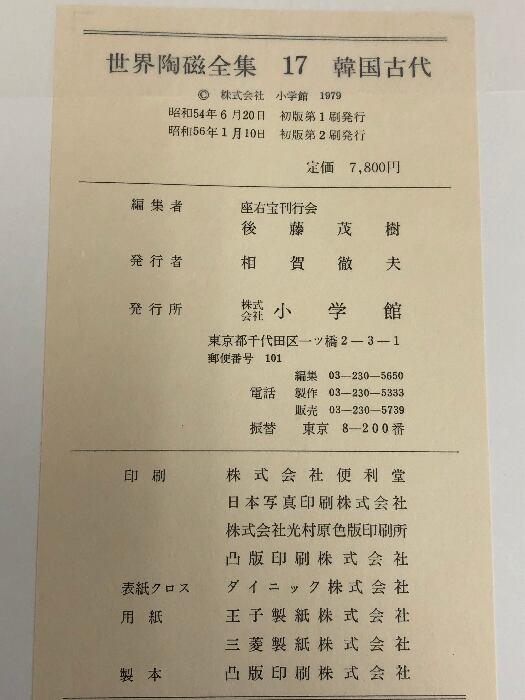 世界陶磁全集 17 韓国古代
© 株式会社 小学館 1979
昭和54年6月20日 初版第1刷発行
昭和56年1月10日 初版第2刷発行
定価 7,800円
編集者 座右宝刊行会
後藤茂樹
発行者 相賀徹夫
発行所 株式会社 小学館
東京都千代田区一ツ橋2―3―1
郵便番号 101
編集 03―230―5650
電話 製作 03―230―5333
販売 03―230―5739
振替 東京 8―200番
印刷 株式会社便利堂
日本写真印刷株式会社
株式会社光村原色版印刷所
凸版印刷株式会社
表紙クロス ダイニック株式会社
用紙 王子製紙株式会社
三菱製紙株式会社
製本 凸版印刷株式会社